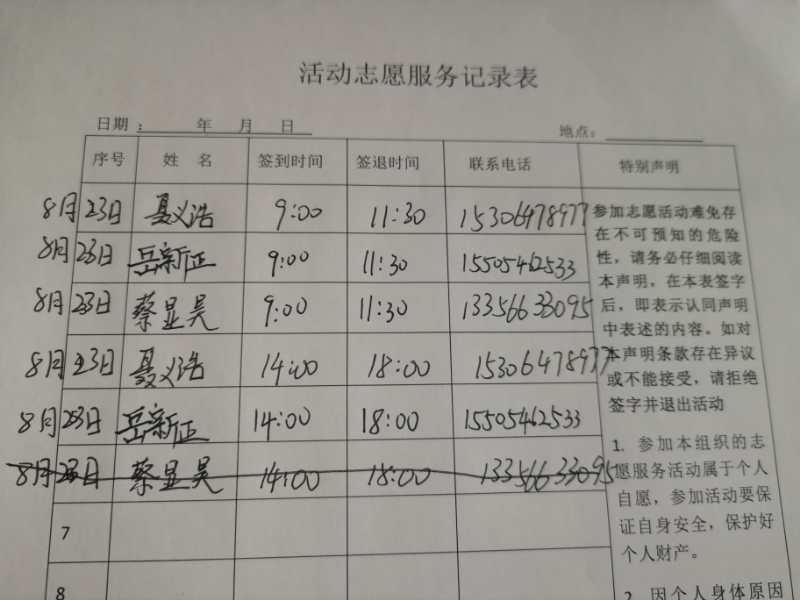 活动志愿服务记录表
日期： 年 月 日 地点：
序号 姓 名 签到时间 签退时间 联系电话 特别声明
8月23日 聂义浩 9:00 11:30 15306478977
8月23日 岳新正 9:00 11:30 15505462533
8月23日 蔡显昊 9:00 11:30 13356633095
8月23日 聂义浩 14:00 18:00 15306478977
8月23日 岳新正 14:00 18:00 15505462533
8月23日 蔡显昊 14:00 18:00 13356633095
7
8
参加志愿活动难免存
在不可预知的危险
性，请务必仔细阅读
本声明，在本表签字
后，即表示认同声明
中表述的内容。如对
本声明条款存在异议
或不能接受，请拒绝
签字并退出活动
1. 参加本组织的志
愿服务活动属于个人
自愿，参加活动要保
证自身安全，保护好
个人财产。
2. 因个人身体原因